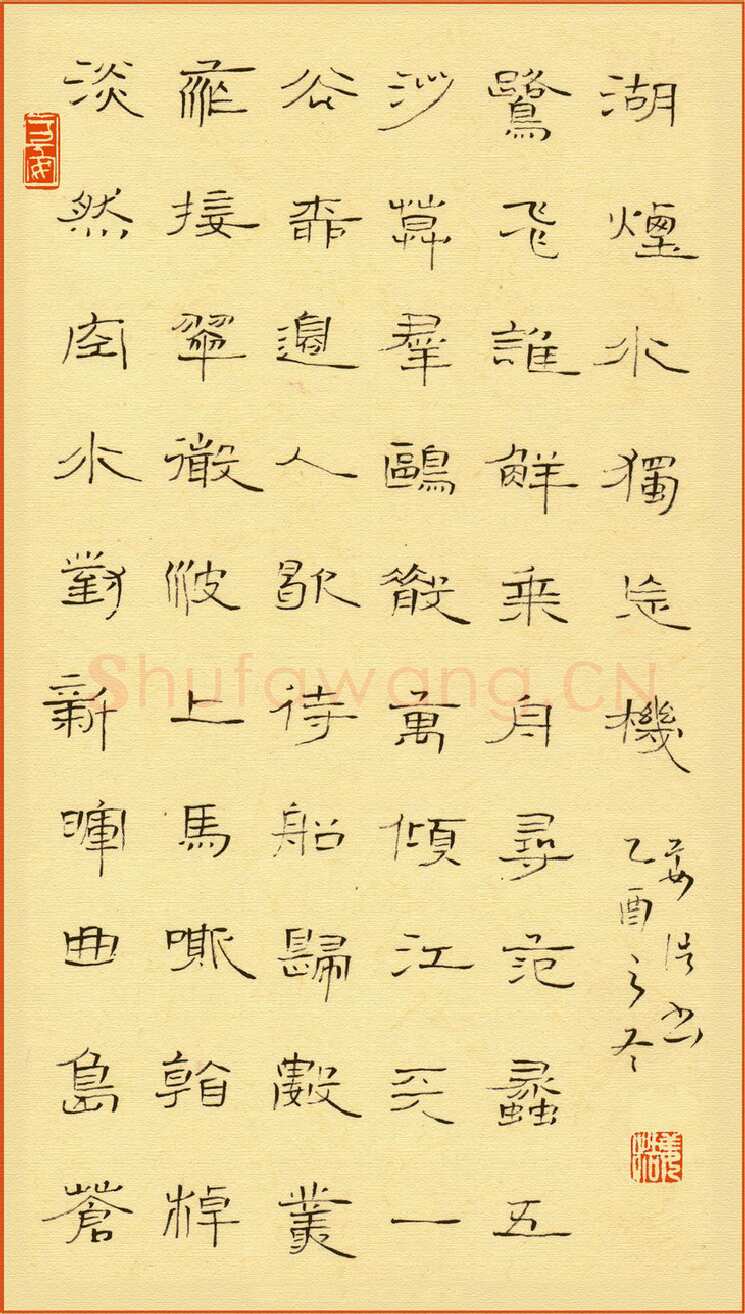 淡然空水對新暉曲島蒼
茫接翠微波上馬嘶看棹
去柳邊人歇待船歸數叢
沙草羣鷗散萬傾江天一
鷺飛誰解乘舟尋范蠡五
湖煙水獨忘機
乙酉之冬
姜浩書
Shufawang.CN